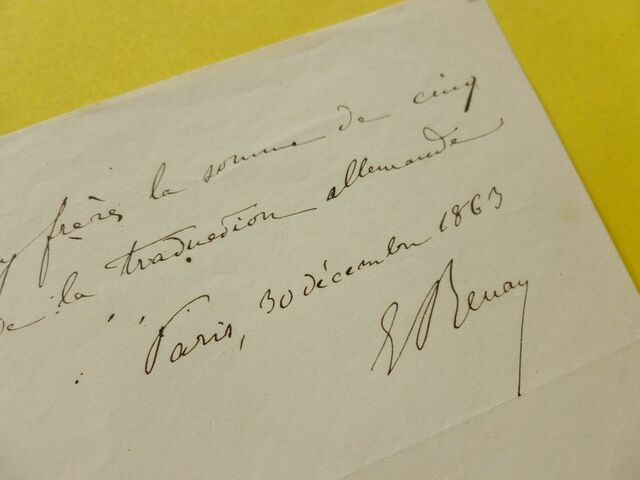 frères la somme de cinq
de la traduction allemande
Paris, 30 décembre 1863
E Renan